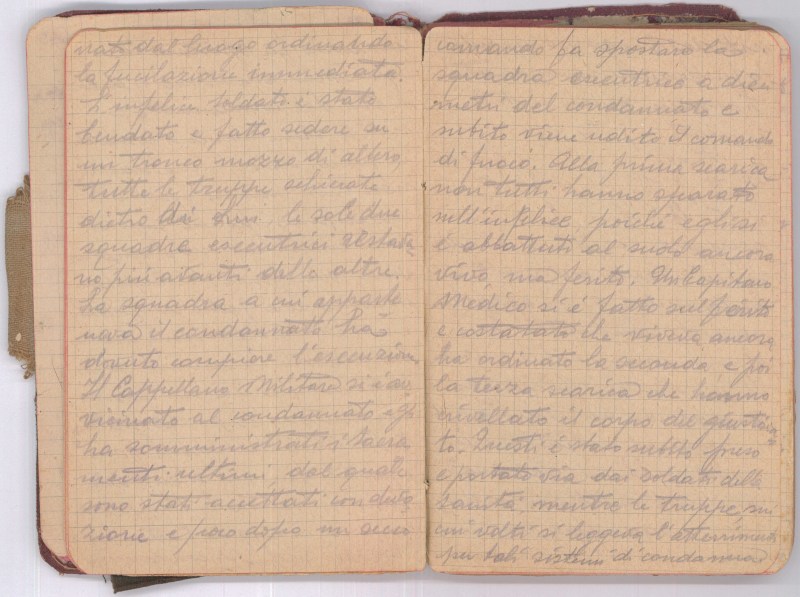 nati dal luogo ordinando
la fucilazione immediata.
L'infelice soldato è stato
bendato e fatto sedere su
un tronco mozzo di albero
tutte le truppe schierate
dietro di lui le sole due
squadre esecutrici restava
no più avanti delle altre.
La squadra a cui apparte
neva il condannato ha
dovuto compiere l'esecuzione.
Il Cappellano Militare si è av
vicinato al condannato e gli
ha somministrati i Sacra
menti ultimi, dal quale
sono stati accettati con devo
zione e poco dopo un secco
comando fa spostare la
squadra esecutrice a dieci
metri del condannato e
subito viene udito il comando
di fuoco. Alla prima scarica
non tutti hanno sparato
nell'infelice, poiché egli si
è abbattuto al suolo ancora
vivo, ma ferito. Un Capitano
Medico si è fatto sul ferito
e costatato che viveva ancora
ha ordinato la seconda e poi
la terza scarica che hanno
crivellato il corpo del giustizia
to. Questi è stato subito preso
e portato via dai soldati della
Sanità, mentre le truppe su
cui volti si leggeva l'atterrimento
per tali sistemi di condanna